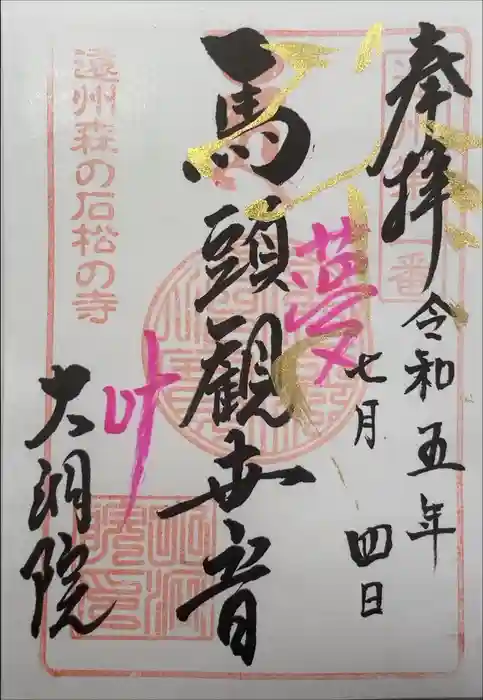 奉拝
令和五年
七月 四日
夢
馬頭觀世音
叶
大洞院
遠州森の石松の寺